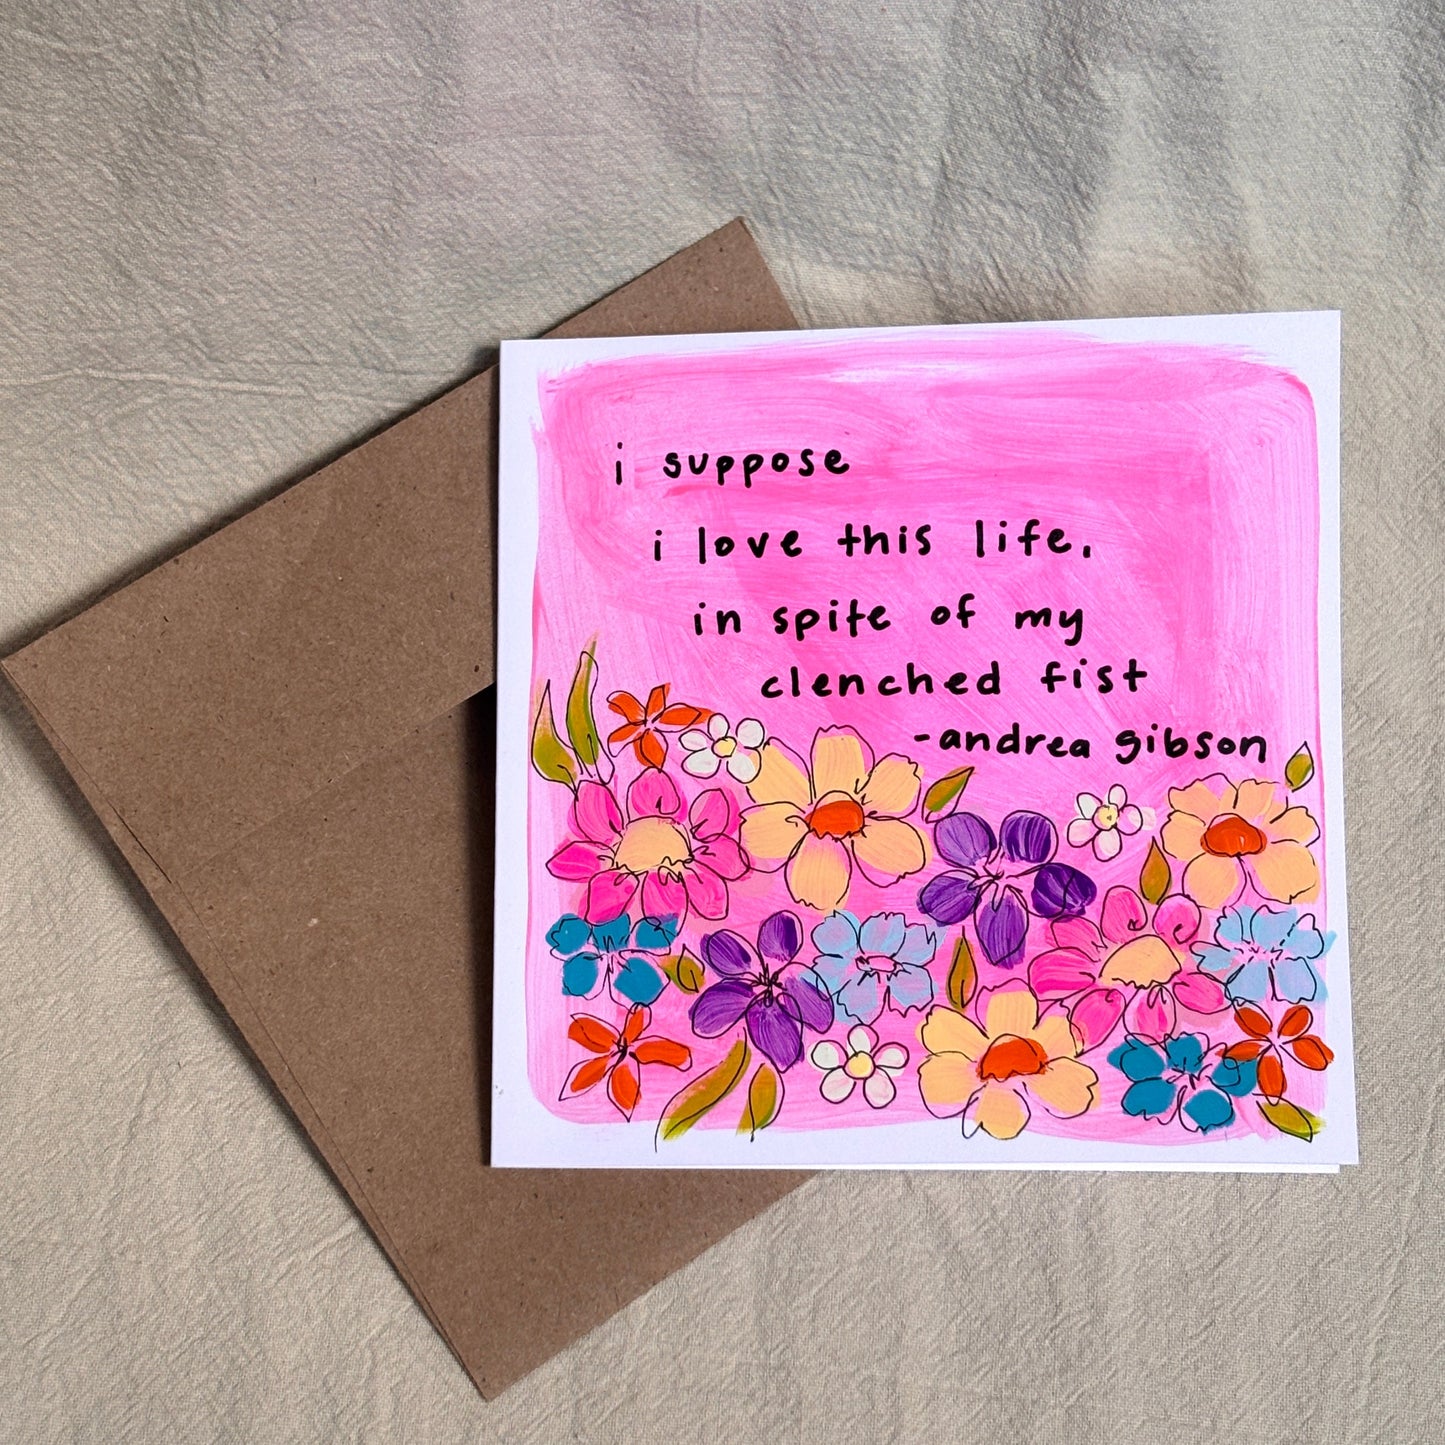 i suppose
i love this life,
in spite of my
clenched fist
-andrea gibson